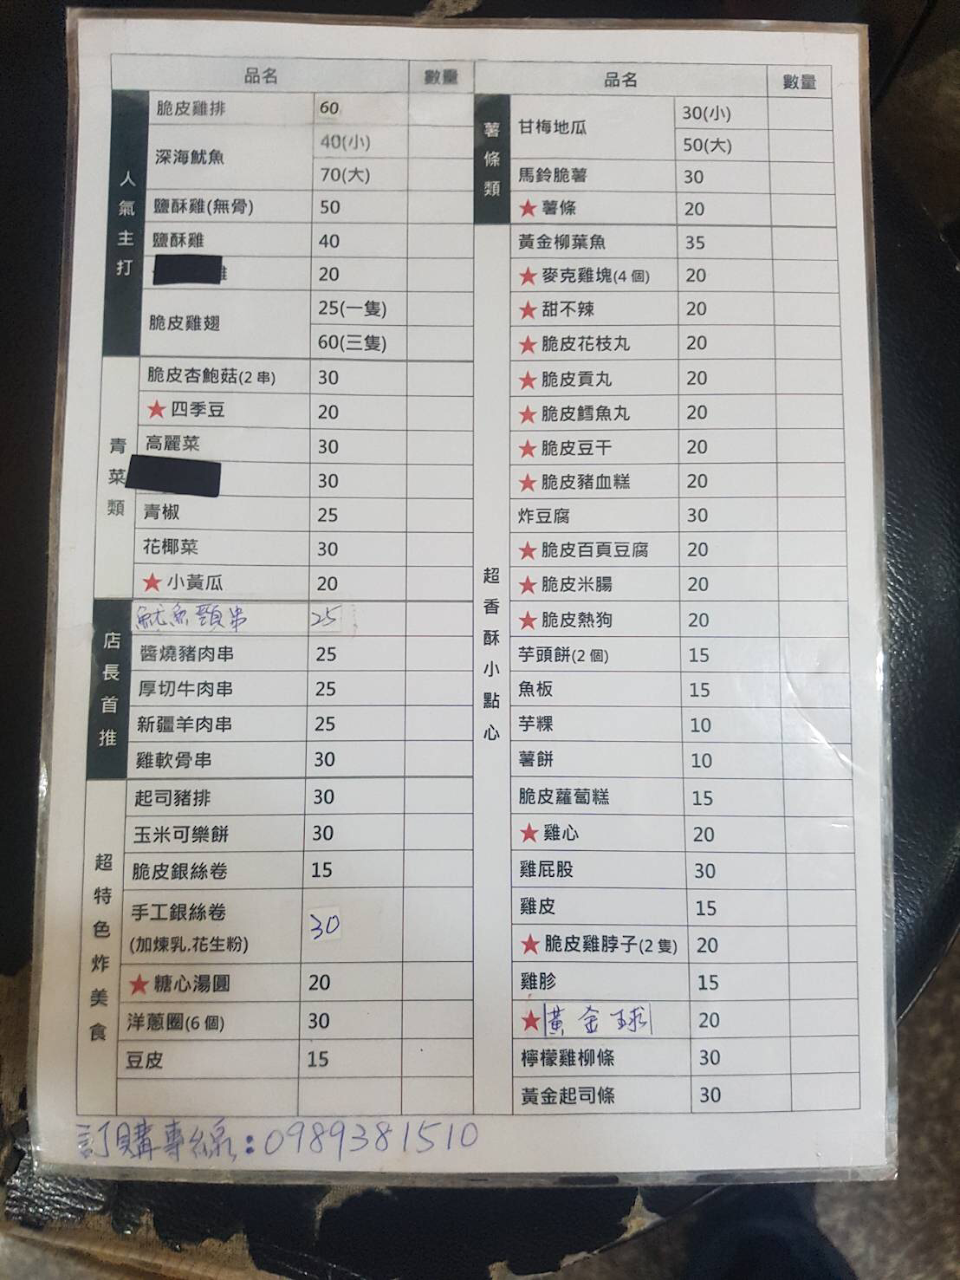 品名 數量
人氣主打
脆皮雞排 60
深海魷魚 40(小)
70(大)
鹽酥雞(無骨) 50
鹽酥雞 40
雞 20
脆皮雞翅 25(一隻)
60(三隻)
青菜類
脆皮杏鮑菇(2串) 30
★四季豆 20
高麗菜 30
30
青椒 25
花椰菜 30
★小黃瓜 20
店長首推
魷魚頭串 25
醬燒豬肉串 25
厚切牛肉串 25
新疆羊肉串 25
雞軟骨串 30
超特色炸美食
起司豬排 30
玉米可樂餅 30
脆皮銀絲卷 15
手工銀絲卷 30
(加煉乳.花生粉)
★糖心湯圓 20
洋蔥圈(6個) 30
豆皮 15
品名 數量
薯條類
甘梅地瓜 30(小)
50(大)
馬鈴脆薯 30
★薯條 20
超香酥小點心
黃金柳葉魚 35
★麥克雞塊(4個) 20
★甜不辣 20
★脆皮花枝丸 20
★脆皮貢丸 20
★脆皮鱈魚丸 20
★脆皮豆干 20
★脆皮豬血糕 20
炸豆腐 30
★脆皮百頁豆腐 20
★脆皮米腸 20
★脆皮熱狗 20
芋頭餅(2個) 15
魚板 15
芋粿 10
薯餅 10
脆皮蘿蔔糕 15
★雞心 20
雞屁股 30
雞皮 15
★脆皮雞脖子(2隻) 20
雞胗 15
★黃金球 20
檸檬雞柳條 30
黃金起司條 30
訂購專線:0989381510